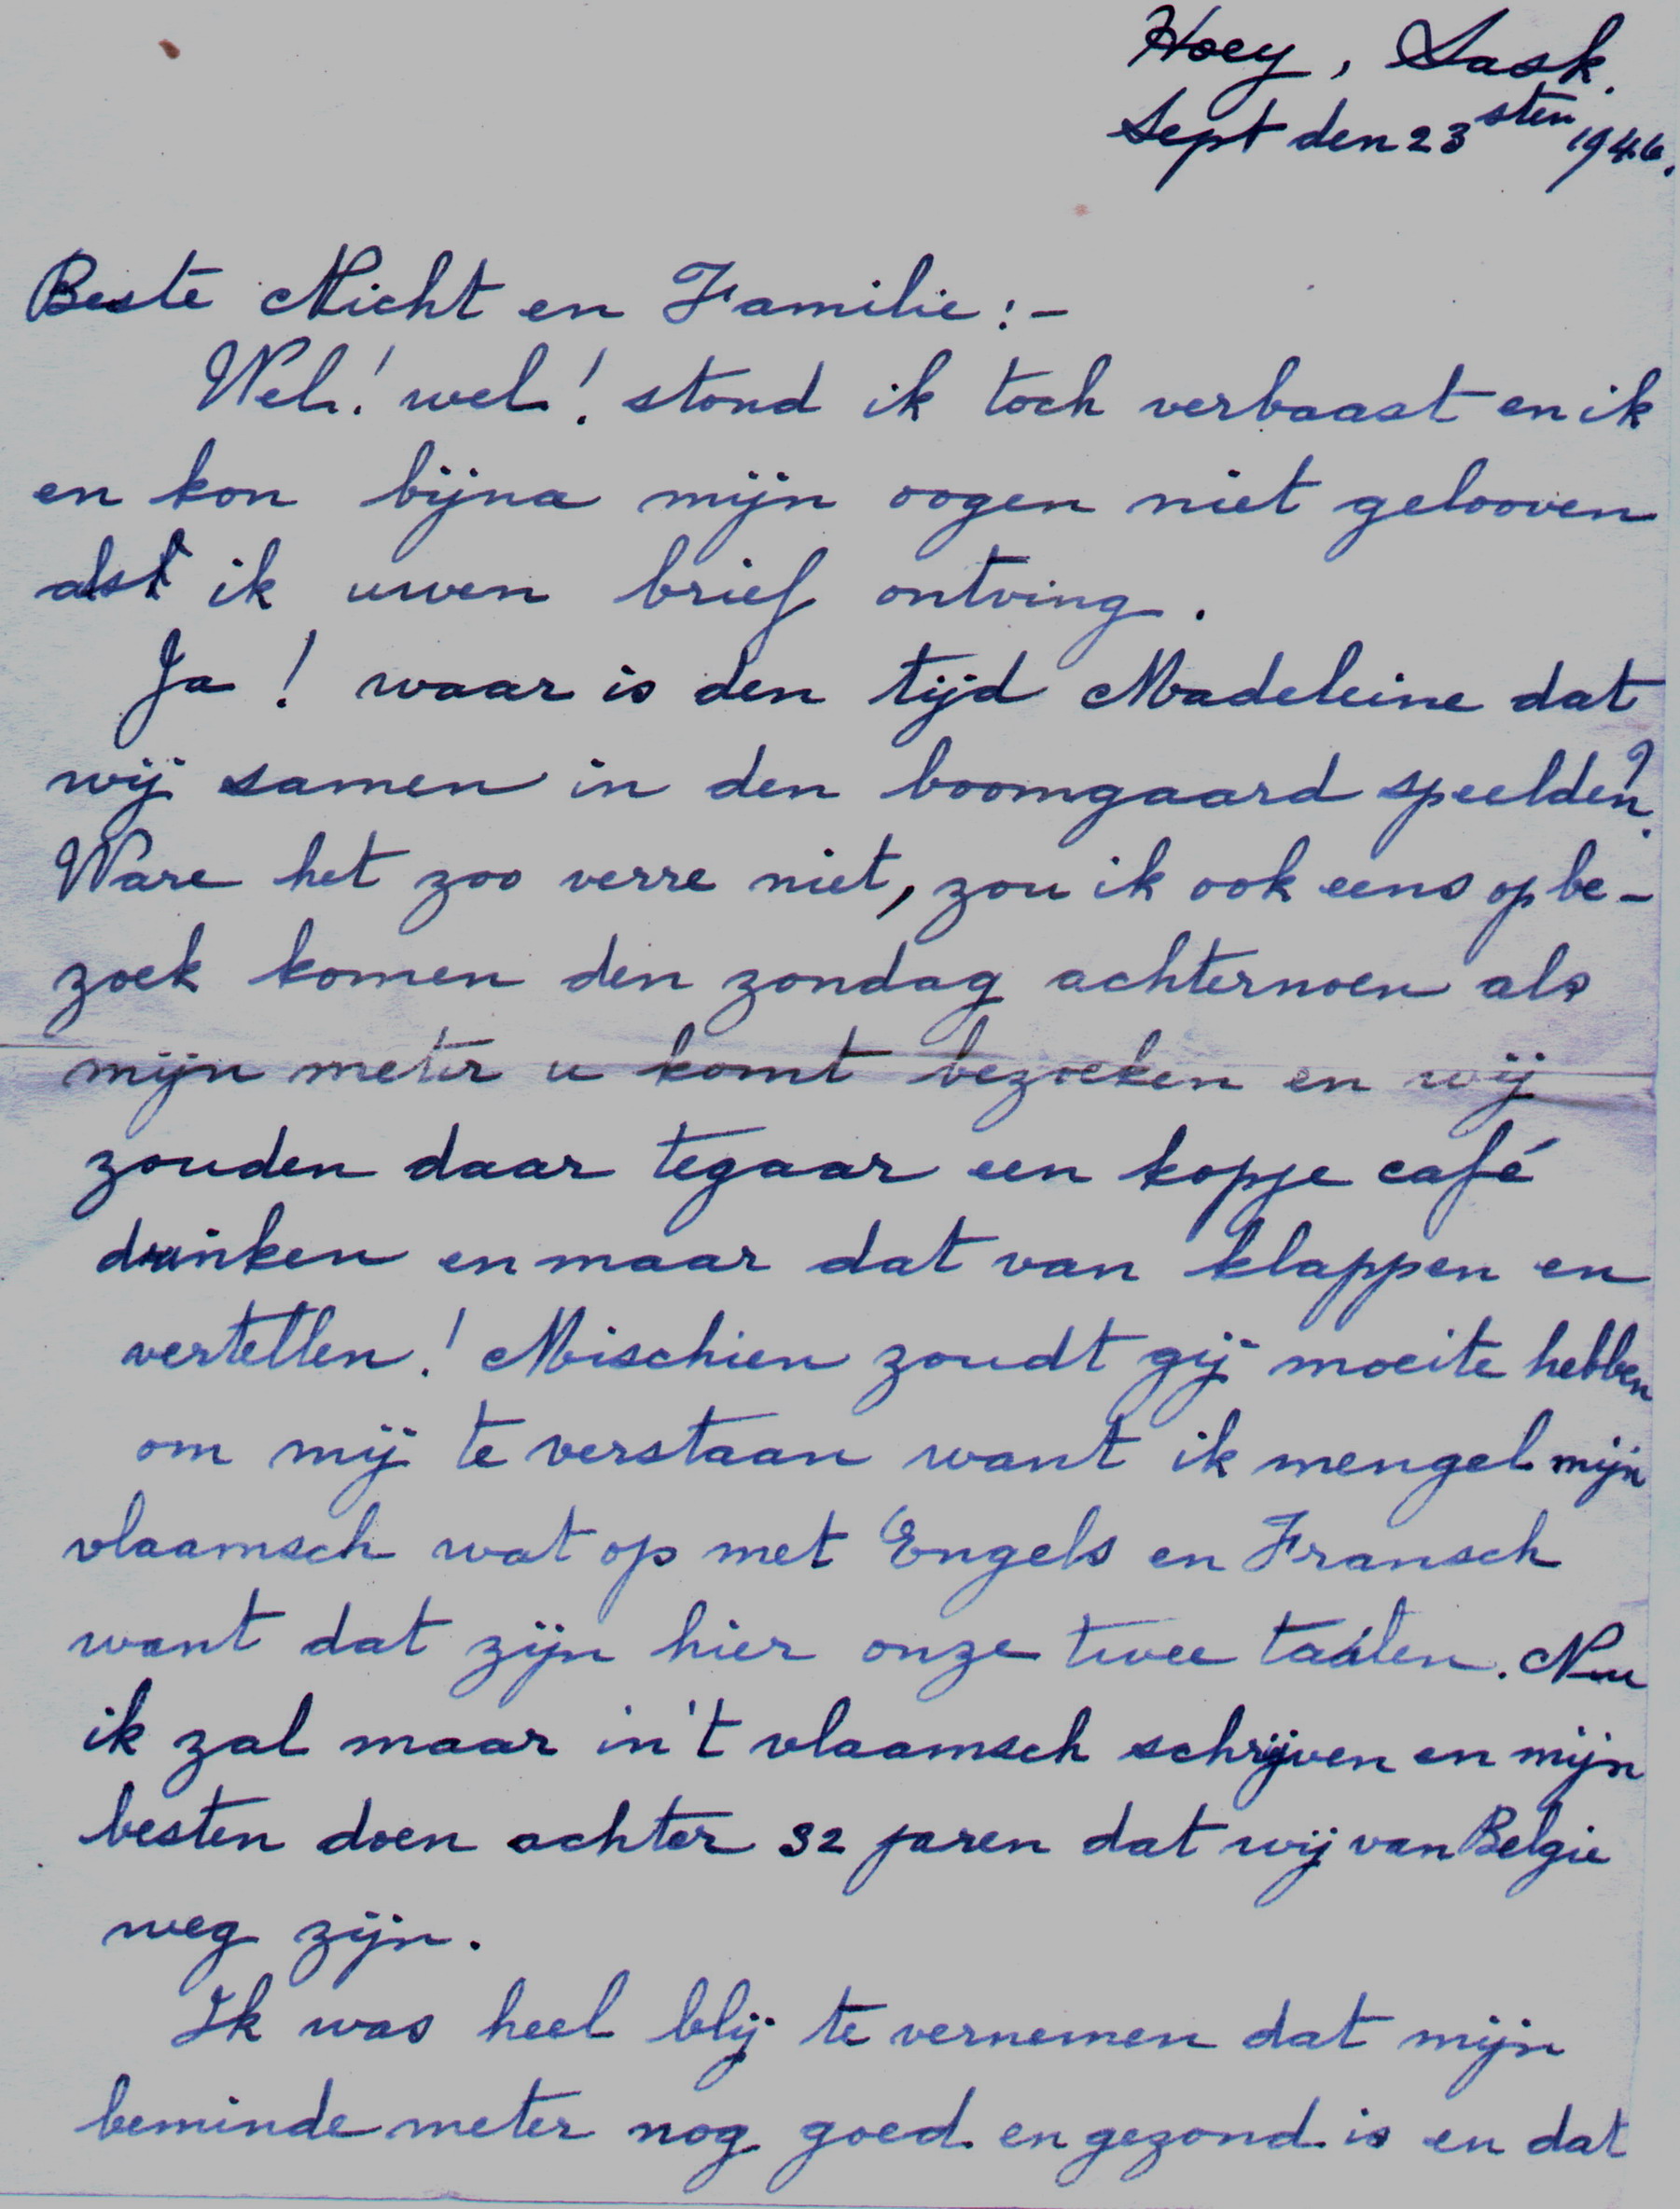 Hoey, Sask.
Sept den 23sten 1946.
Beste Nicht en Familie:-
Wel! wel! stond ik toch verbaast en ik
en kon bijna mijn oogen niet gelooven
als ik uwen brief ontving.
Ja! waar is den tijd Madeleine dat
wij samen in den boomgaard speelden?
Ware het zoo verre niet, zou ik ook eens op be-
zoek komen den zondag achternoen als
mijn meter u komt bezoeken en wij
zouden daar tegaar een kopje café
drinken en maar dat van klappen en
vertellen! Mischien zoudt gij moeite hebben
om mij te verstaan want ik mengel mijn
vlaamsch wat op met Engels en Fransch
want dat zijn hier onze twee taalen. Nu
ik zal maar in't vlaamsch schrijven en mijn
besten doen achter 32 jaren dat wij van Belgie
weg zijn.
Ik was heel blij te vernemen dat mijn
beminde meter nog goed en gezond is en dat